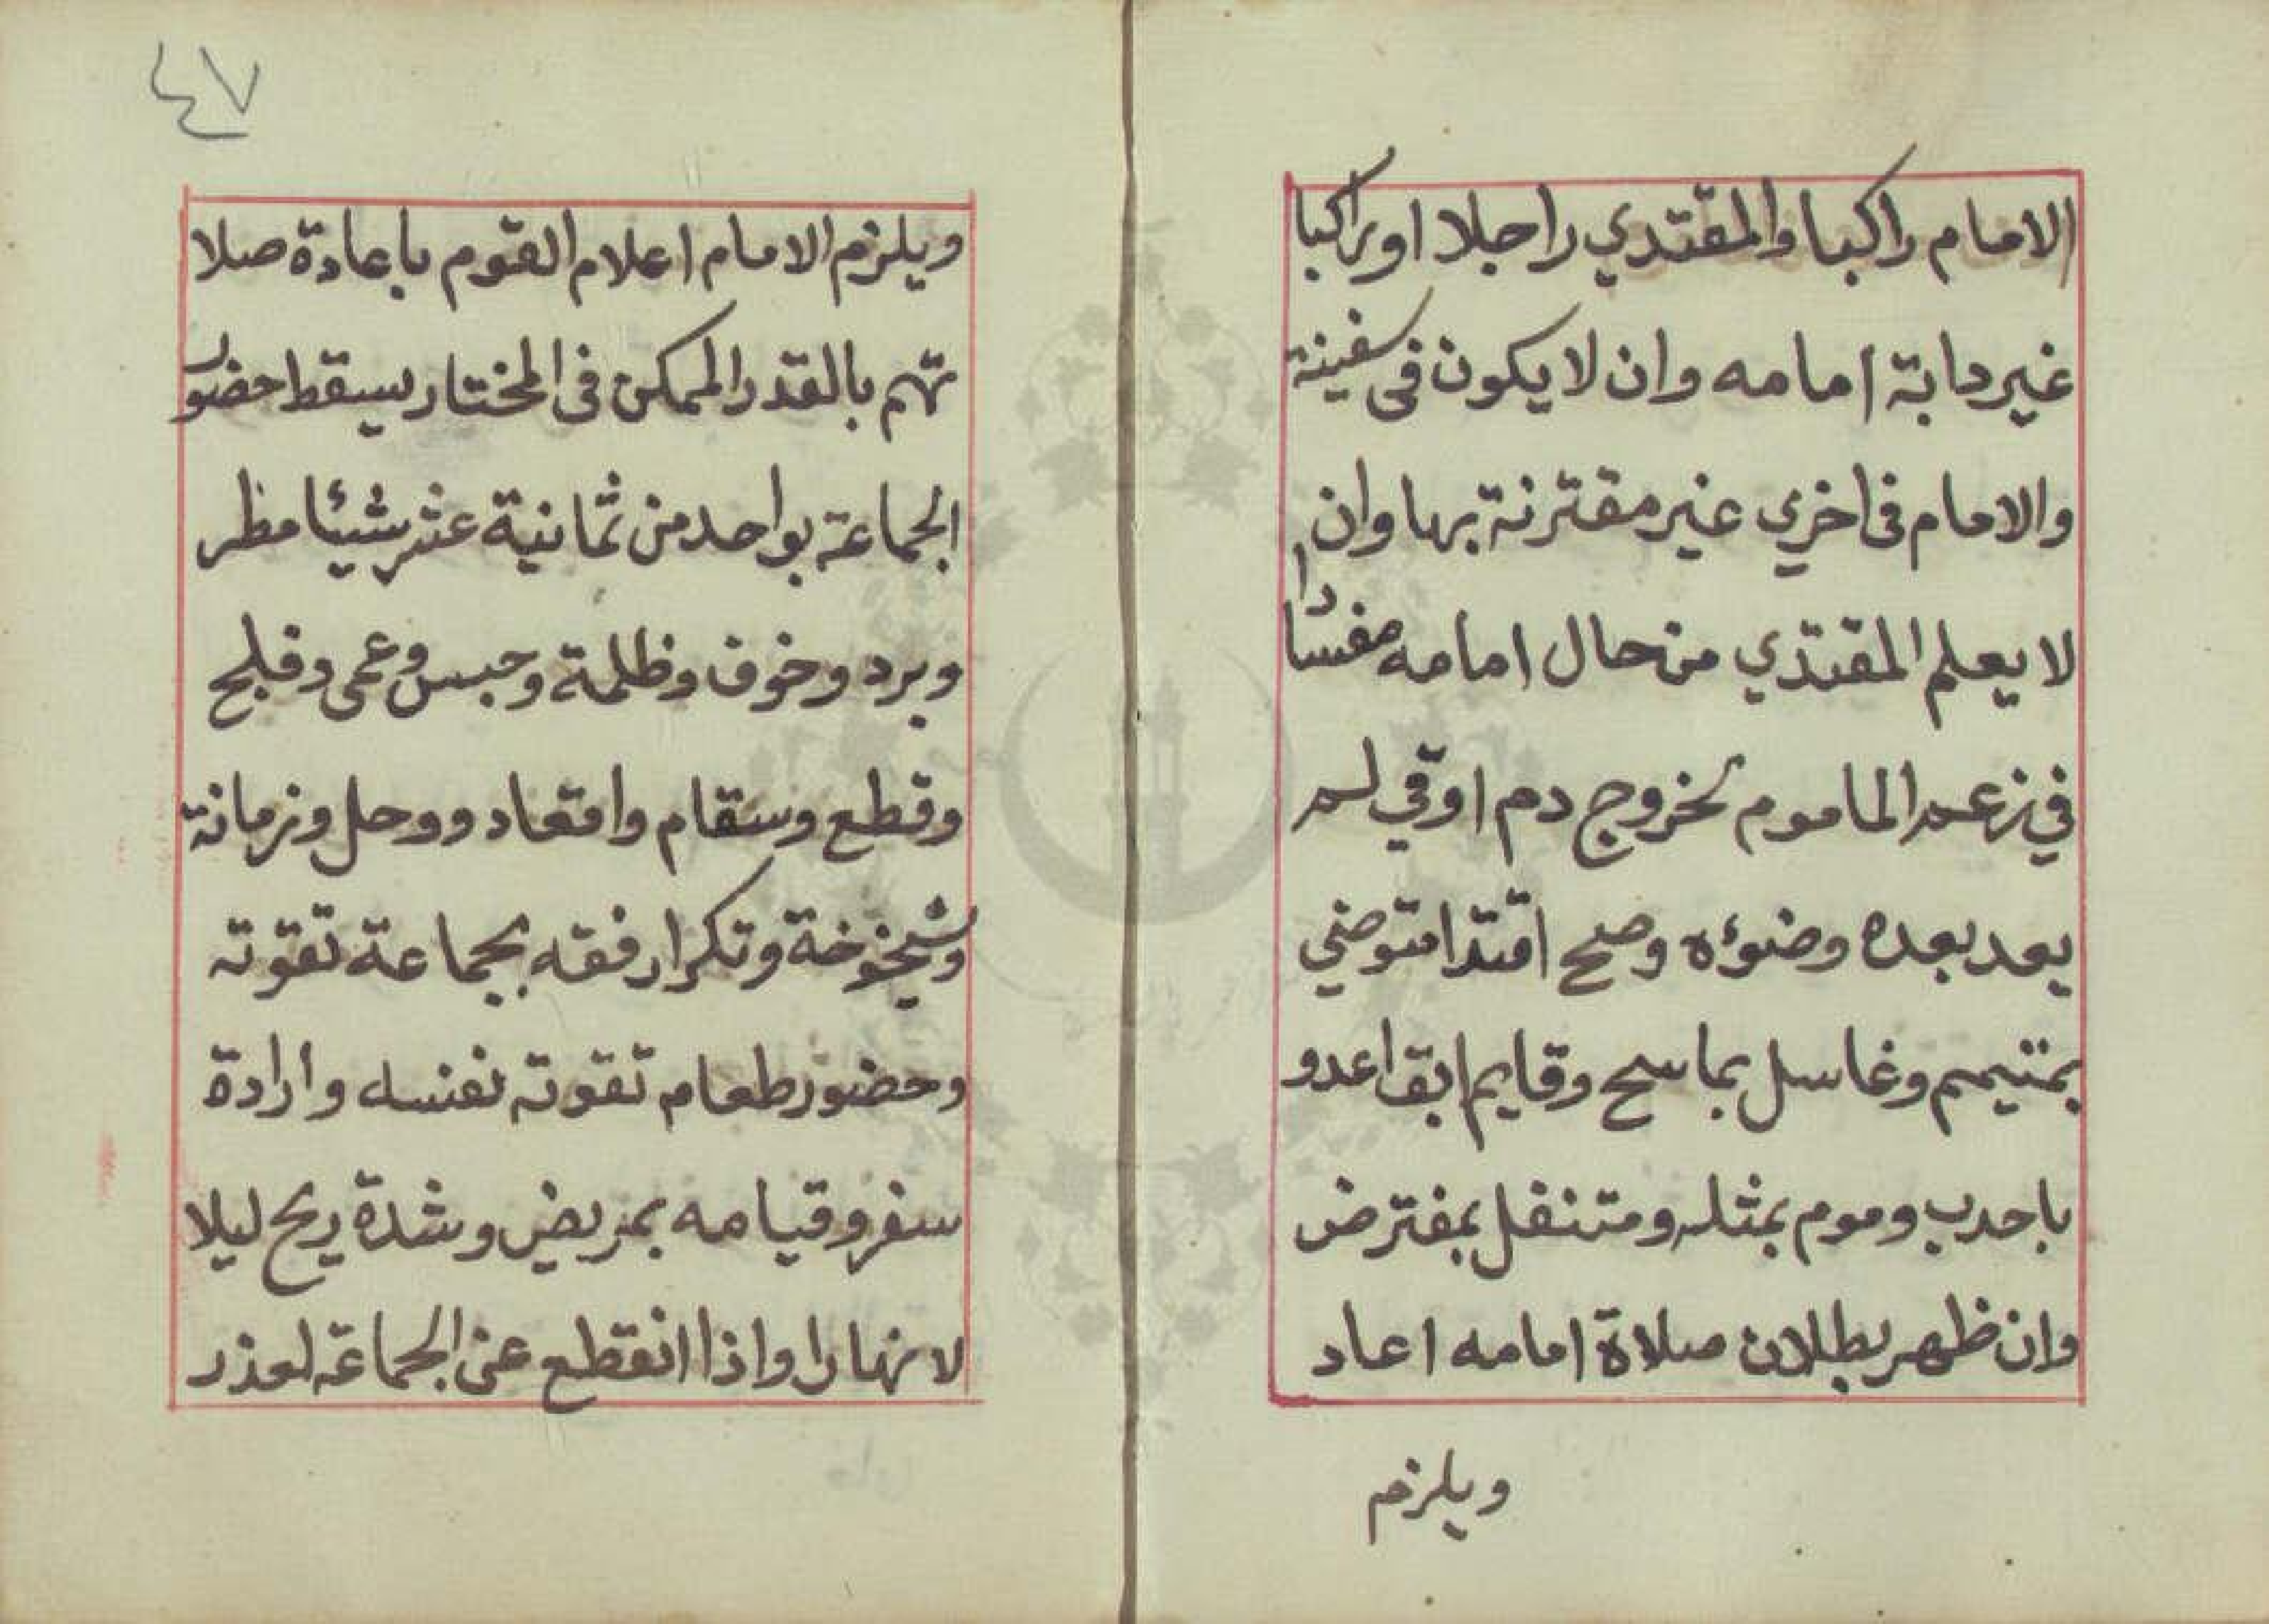 الامام راكبا والمقتدي راجلا او راكبا
غير دابة امامه وان لا يكون فى سفينة
والامام فى اخري غير مقترنة بها وان
لا يعلم المقتدي من حال امامه مفسدا
في زعم الماموم كخروج دم او قي لم
يعد بعده وضوءه وصح اقتدا متوضي
بمتيمم وغاسل بماسح وقايم بقاعد و
باحدب وموم بمثله ومتنفل بمفترض
وان ظهر بطلان صلاة امامه اعاد
ويلزم
٤٧
ويلزم الامام اعلام القوم باعادة صلا
تهم بالقدر الممكن فى المختار يسقط حضور
الجماعة بواحد من ثمانية عشر شيئا مطر
وبرد وخوف وظلمة وحبس وعمى وفلج
وقطع وسقام واقعاد ووحل وزمانة
وشيخوخة وتكرار فقه بجماعة تفوته
وحضور طعام تقوته نفسه وارادة
سفر وقيامه بمريض وشدة ريح ليلا
لا نهارا واذا انقطع عن الجماعة لعذر